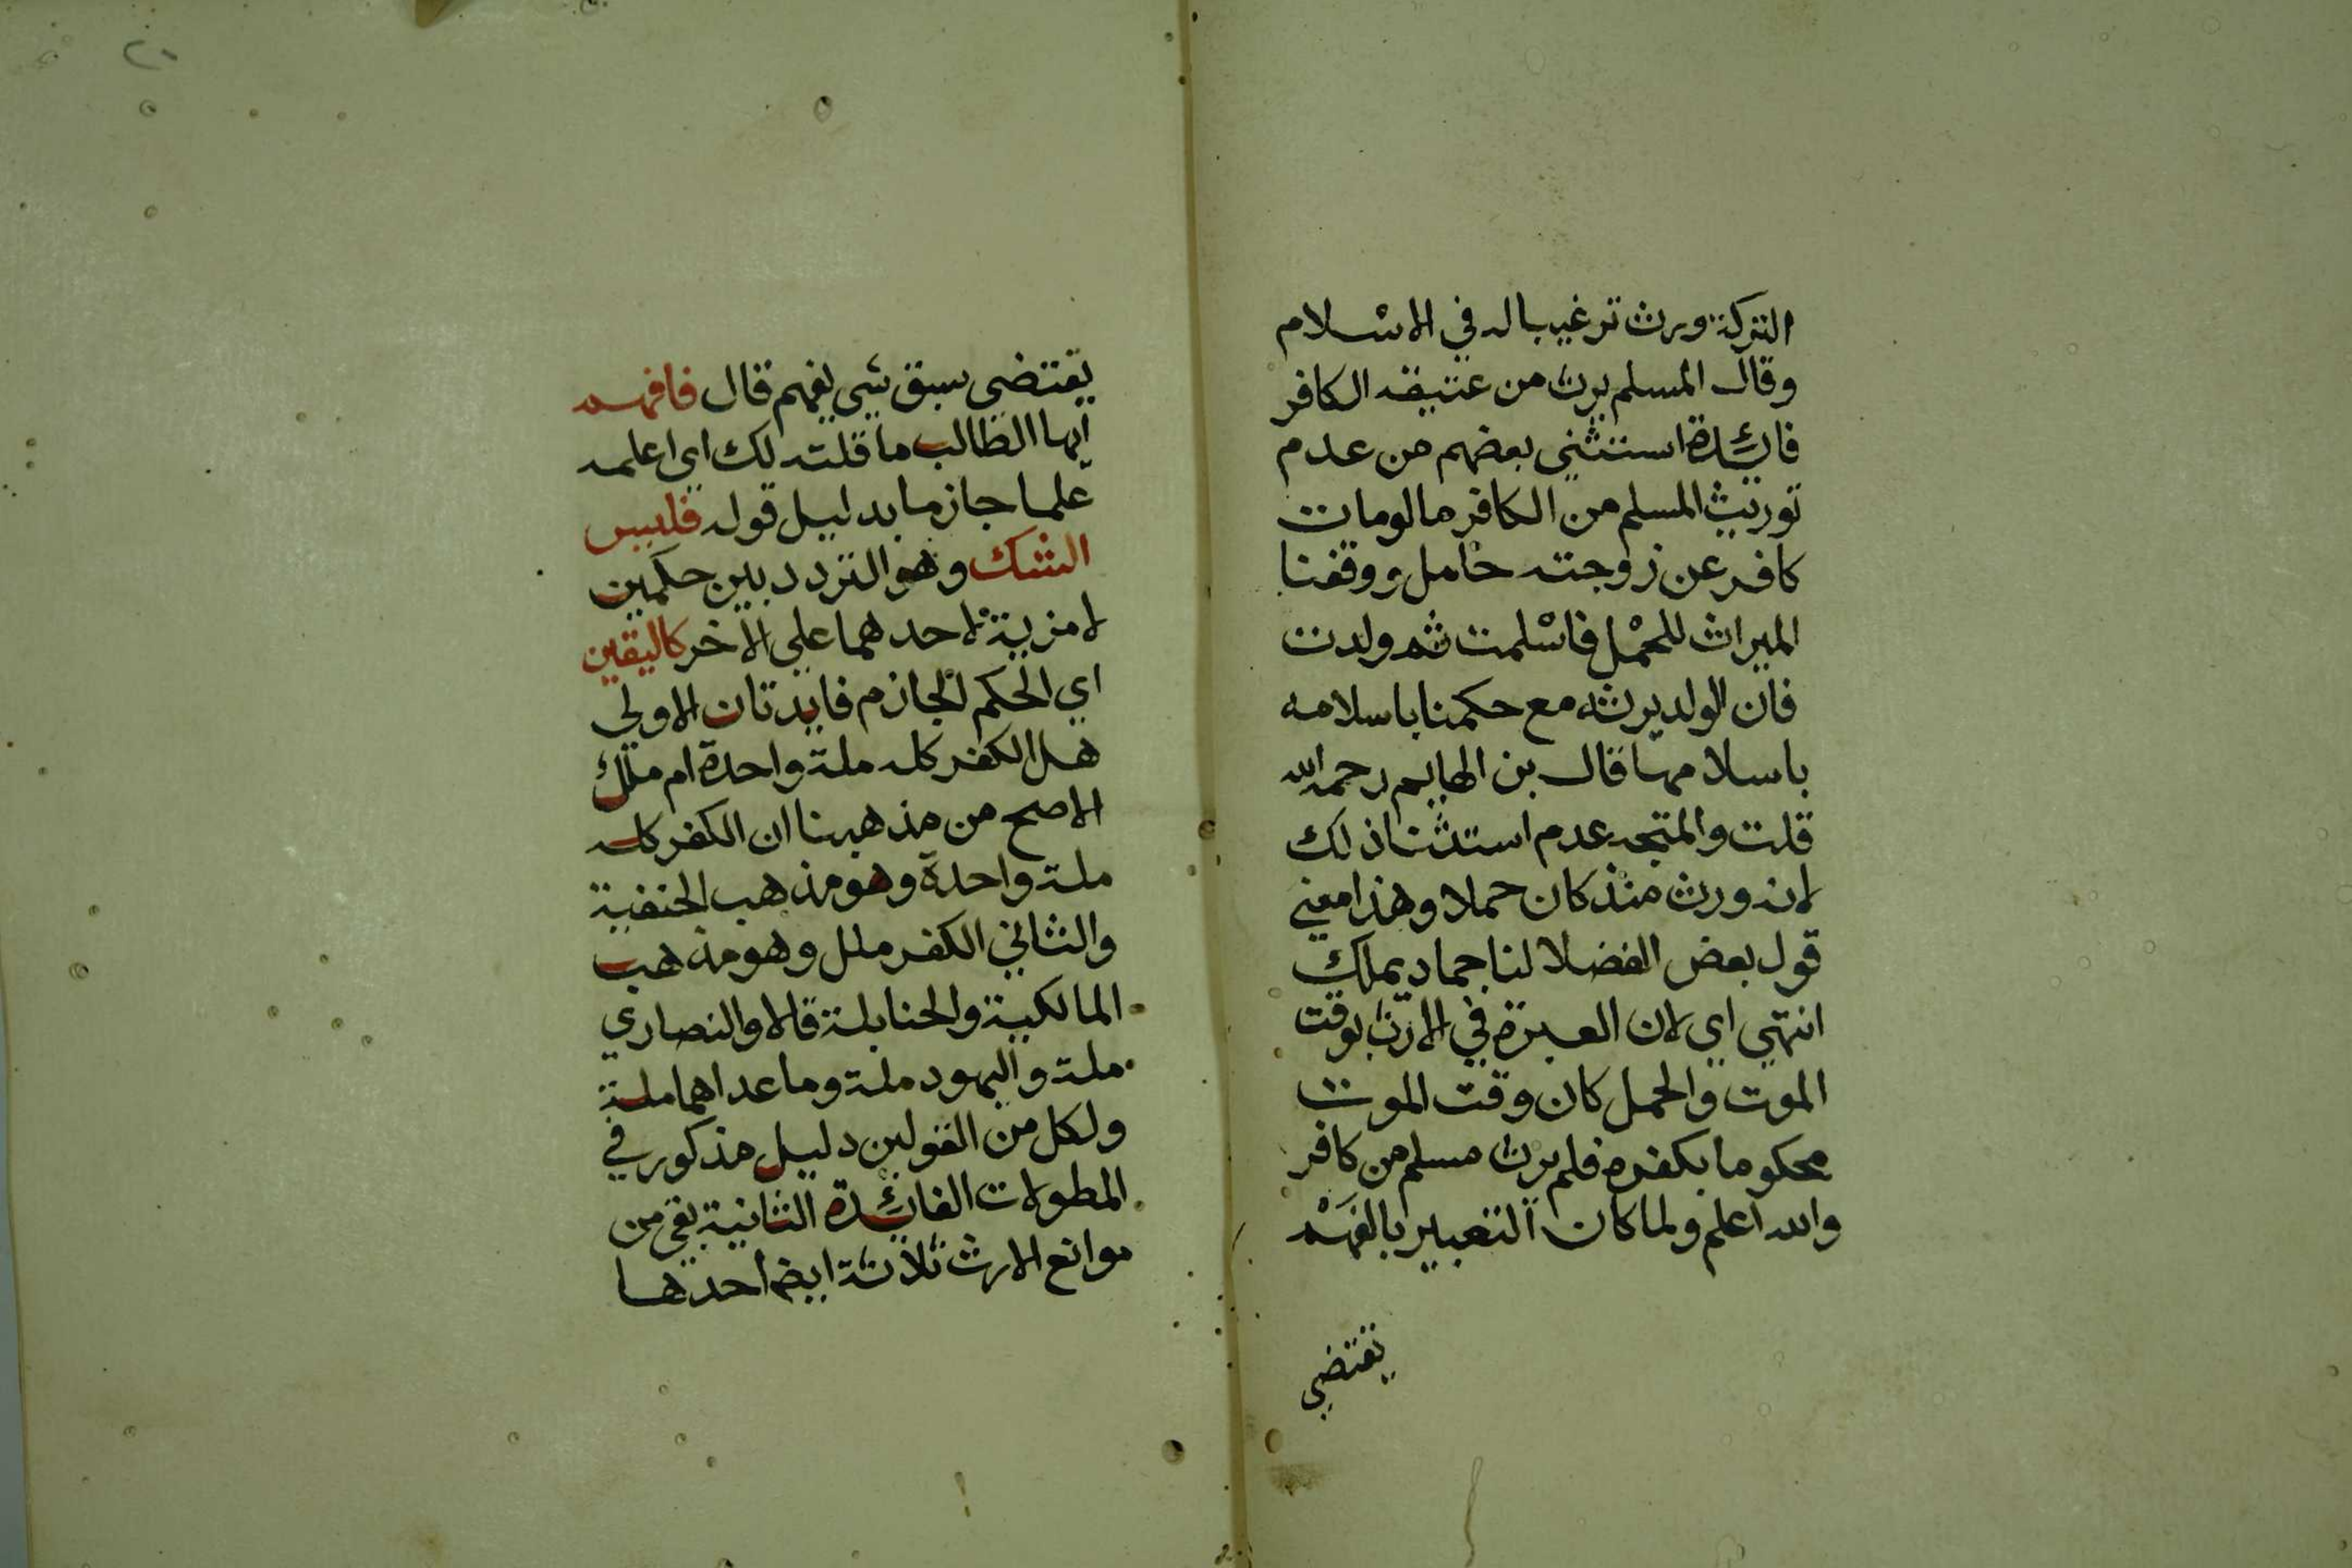 التركة ورث ترغيبا له في الاسلام
وقال المسلم يرث من عتيقه الكافر
فائدة استثني بعضهم من عدم
توريث المسلم من الكافر ما لو مات
كافر عن زوجته حامل ووقفنا
الميراث للحمل فاسلمت ثم ولدت
فان الولد يرثه مع حكمنا باسلامه
باسلامها قال بن الهايم رحمه الله
قلت والمتجه عدم استثنا ذلك
لانه ورث منذ كان حملا وهذا معني
قول بعض الفضلا لنا جماد يملك
انتهي اي لان العبرة في الارث بوقت
الموت والحمل كان وقت الموت
محكوما بكفره فلم يرث مسلم من كافر
والله اعلم ولما كان التعبير بالفهم
يقتضي
٢١
يقتضي سبق شي يفهم قال فافهم
ايها الطالب ما قلته لك اي اعلمه
علما جازما بدليل قوله فليس
الشك وهو التردد بين حكمين
لا مزية لاحدهما علي الاخر كاليقين
اي الحكم الجازم فايدتان الاولي
هل الكفر كله ملة واحدة ام ملل
الاصح من مذهبنا ان الكفر كله
ملة واحدة وهو مذهب الحنفية
والثاني الكفر ملل وهو مذهب
المالكية والحنابلة قالا والنصاري
ملة واليهود ملة وما عداهما ملة
ولكل من القولين دليل مذكور في
المطولات الفائدة الثانية بقي من
موانع الارث ثلاثة ايضا احدها